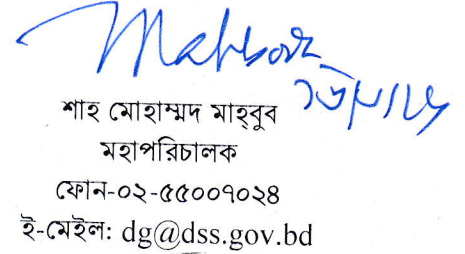 Mahboob
শাহ মোহাম্মদ মাহ্‌বুব
মহাপরিচালক
ফোন-০২-৫৫০০৭০২৪
ই-মেইল: dg@dss.gov.bd